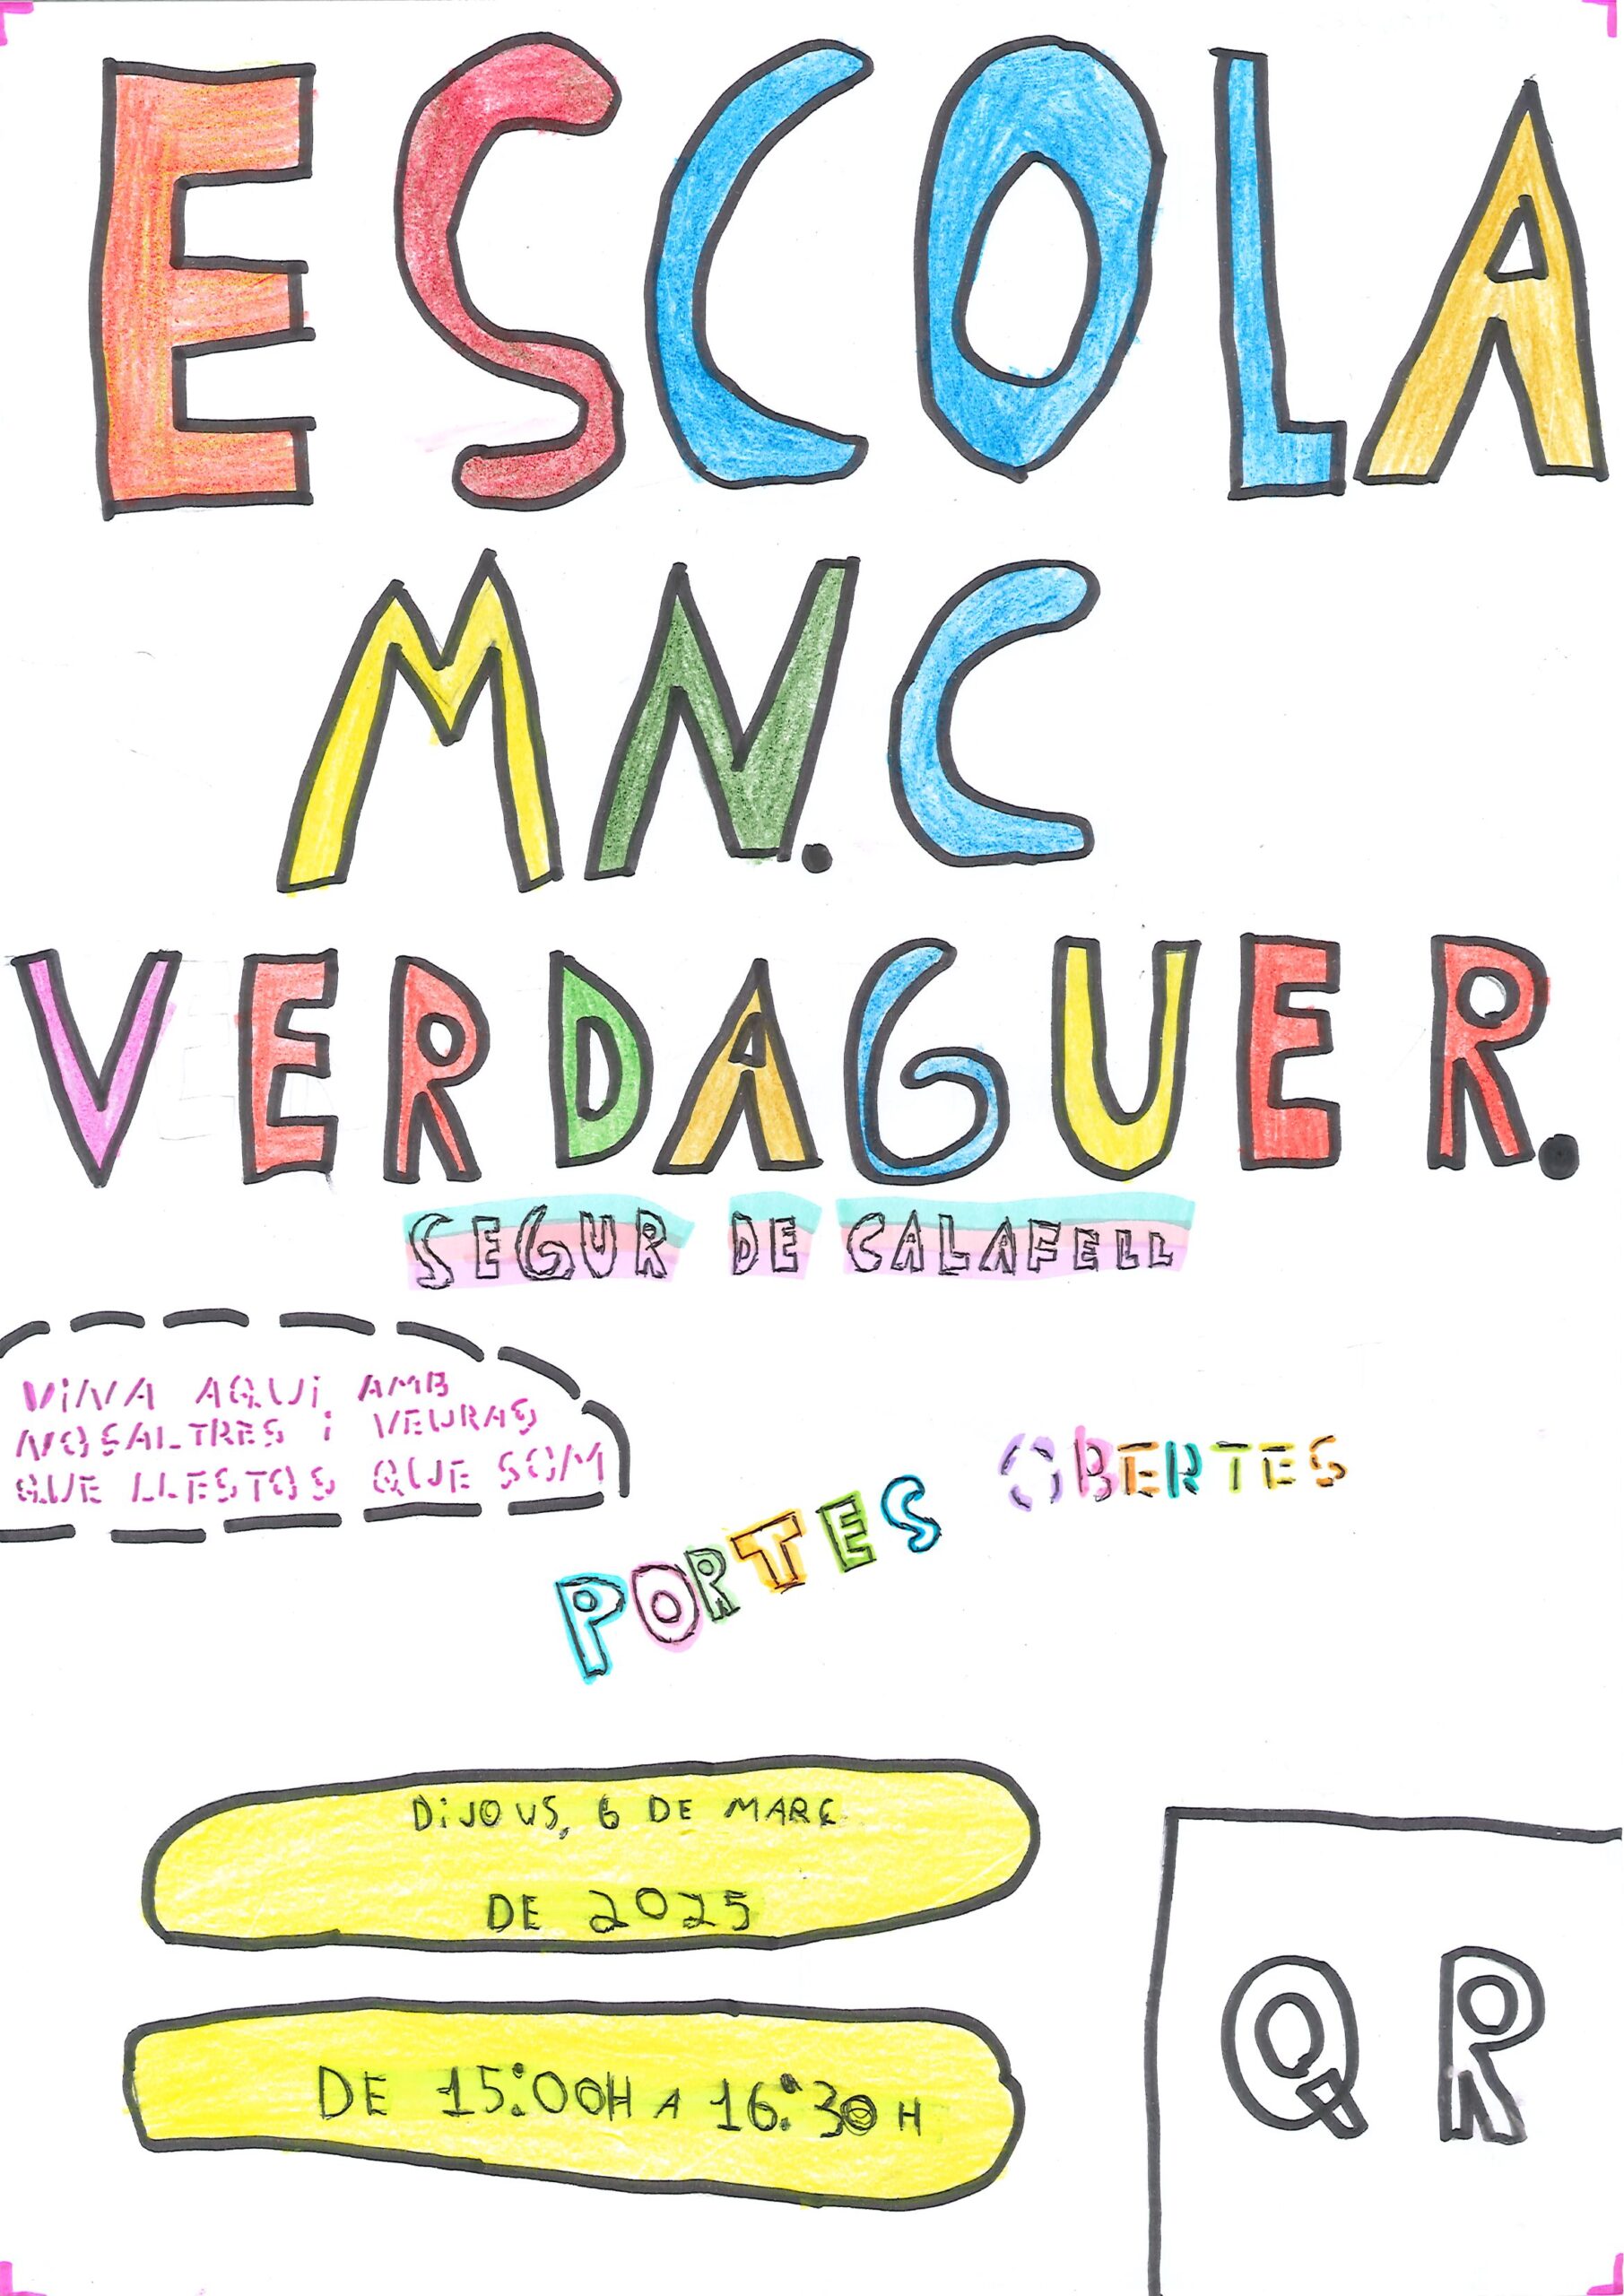 ESCOLA
MN.C
VERDAGUER.
SEGUR DE CALAFELL
ViNA AQUi AMB
NOSALTRES i VEURAS
QUE LLESTOS QUE SOM
PORTES OBERTES
DiJOUS, 6 DE MARÇ
DE 2025
DE 15:00H A 16:30 H
QR